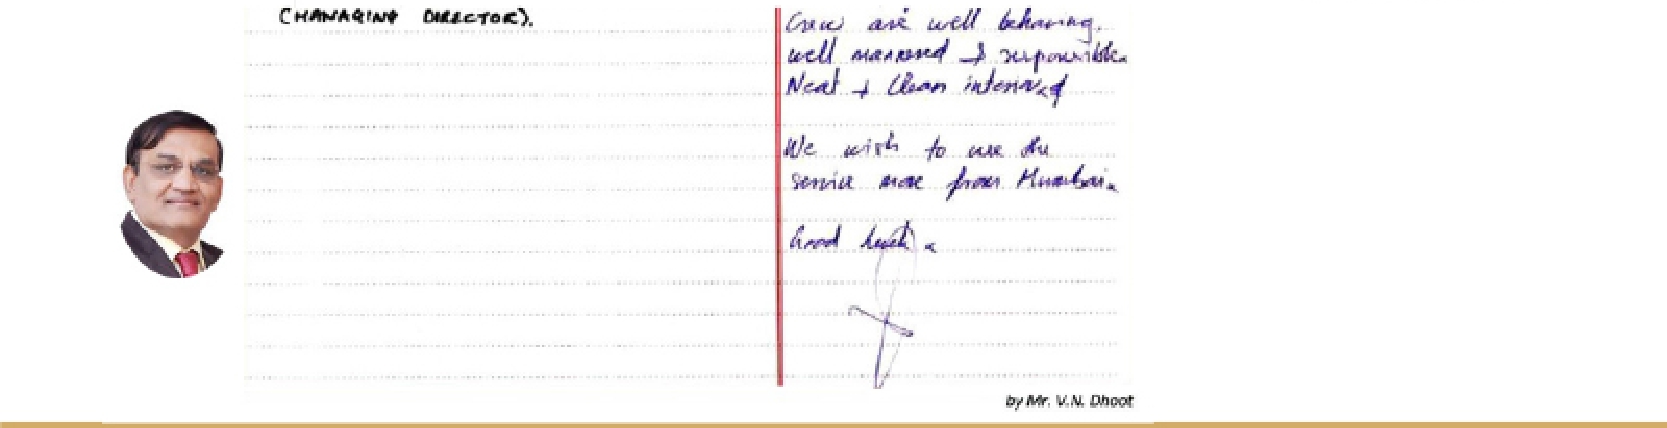 (MANAGING DIRECTOR).
Crew are well behaving.
well mannered & responsible.
Neat & Clean interior
We wish to use the
service more from Mumbai.
Good luck.
by Mr. V.N. Dhoot